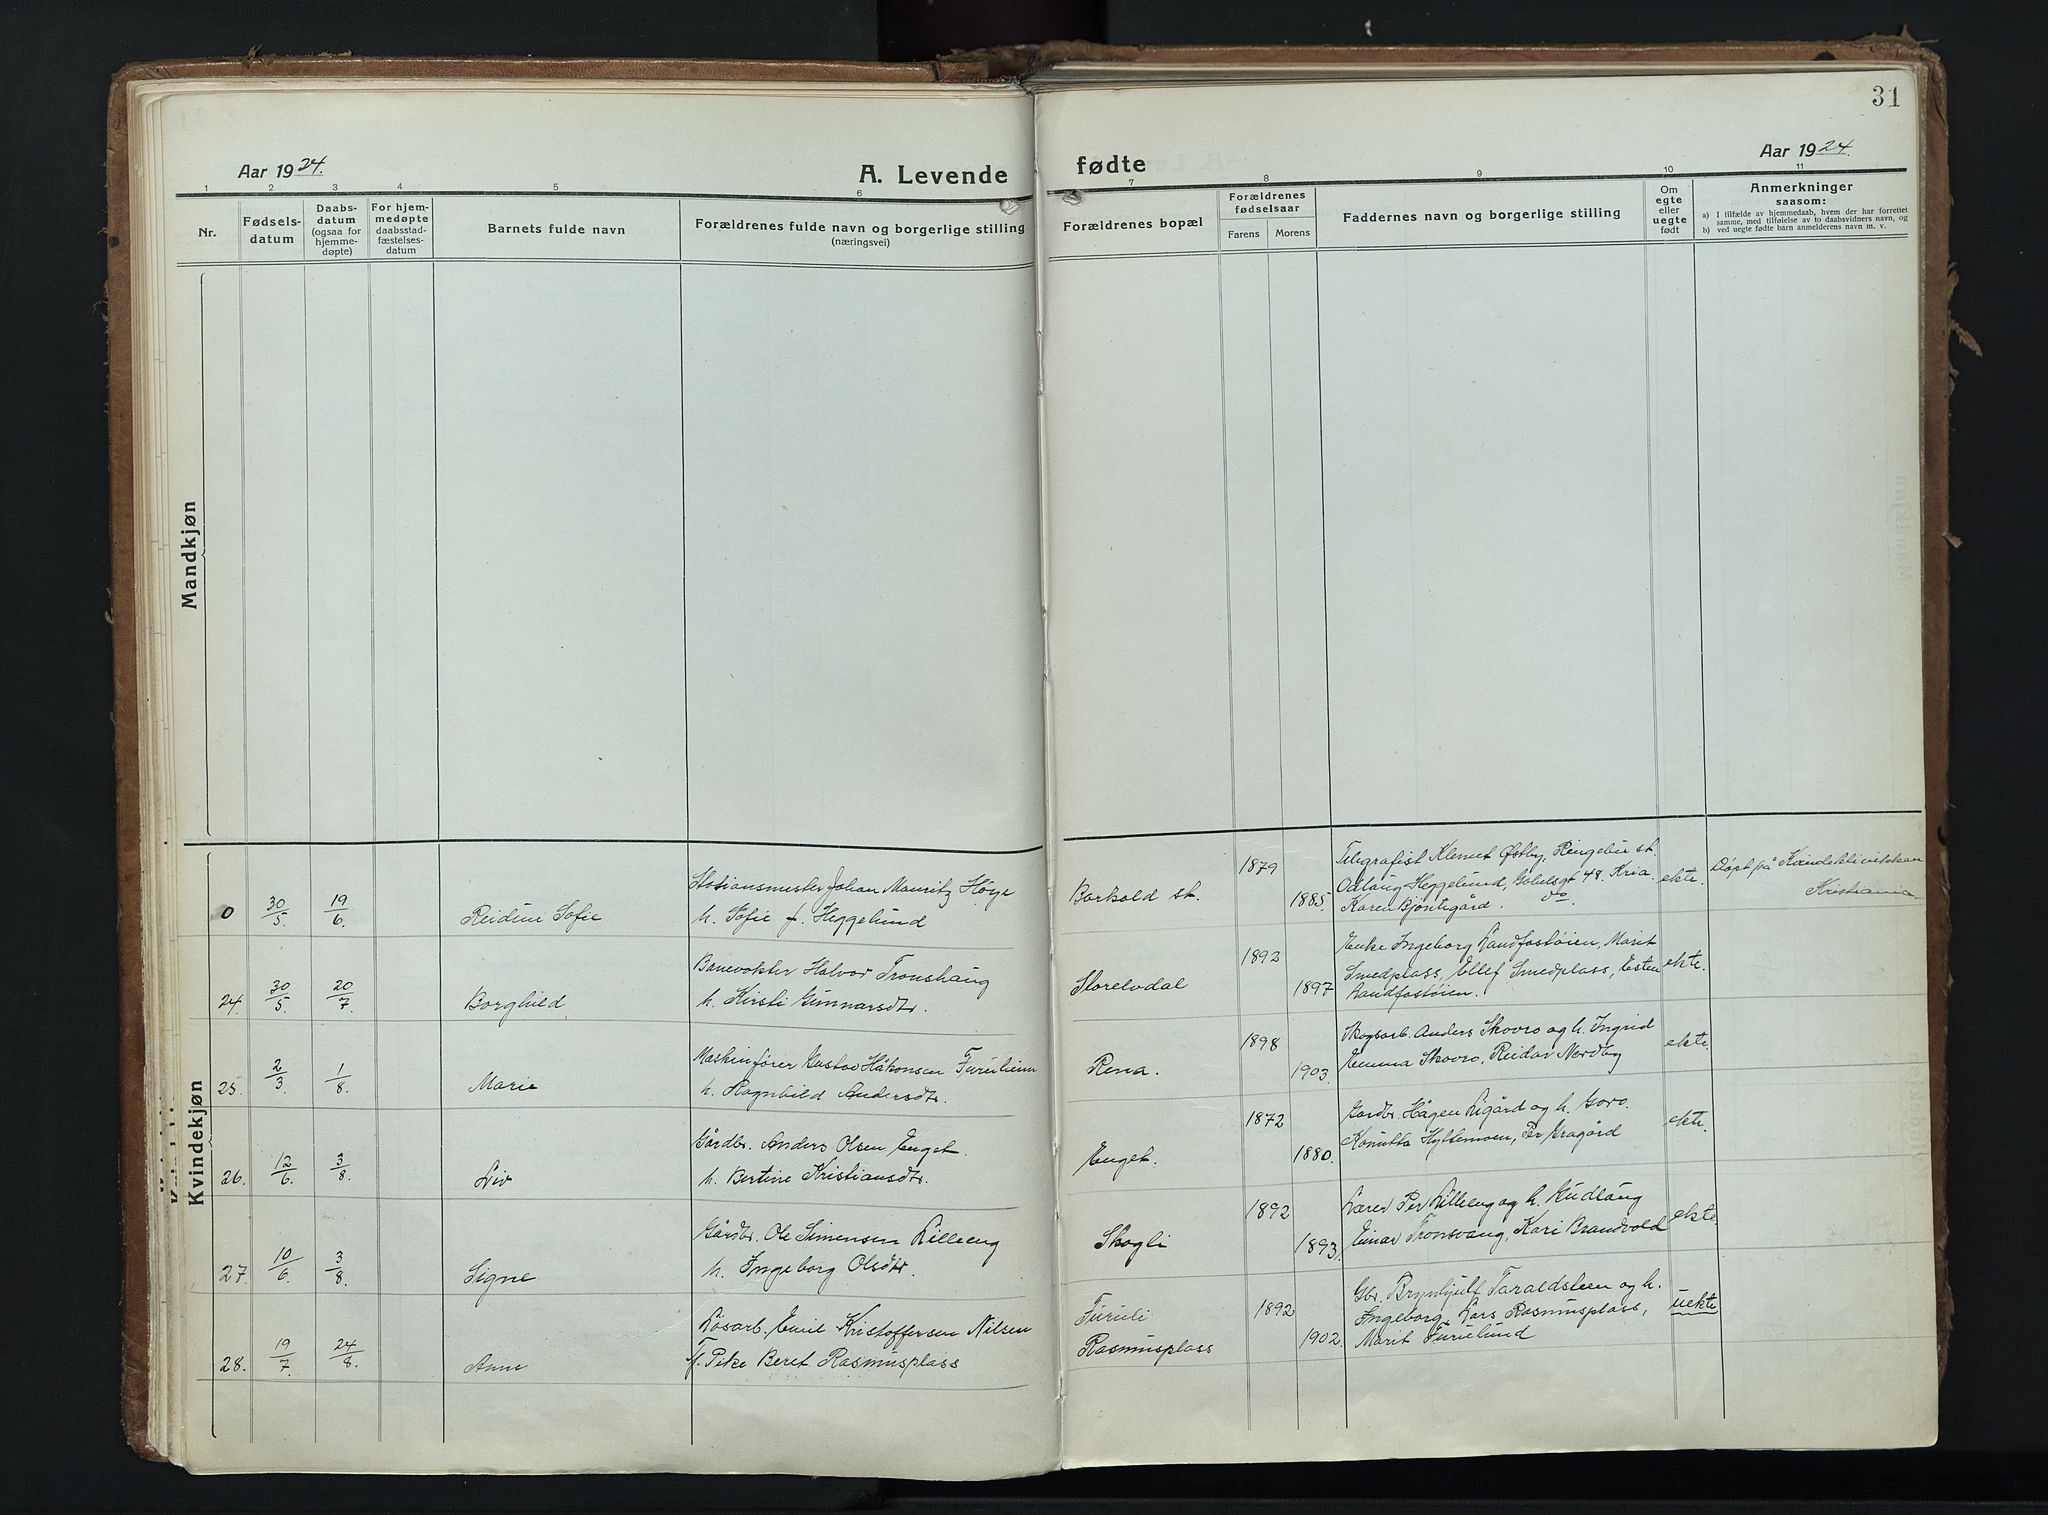 31
Aar 1924.
A. Levende
fødte
Aar 1924.
1 2 3 4 5 6 7 8 9 10 11
Nr.
Fødsels-
datum
Daabs-
datum
(ogsaa for
hjemme-
døpte)
For hjem-
medøpte
daabsstad-
fæstelses-
datum
Barnets fulde navn
Forældrenes fulde navn og borgerlige stilling
(næringsvei)
Forældrenes bopæl
Forældrenes
fødselsaar
Farens Morens
Faddernes navn og borgerlige stilling
Om
egte
eller
uegte
født
Anmerkninger
saasom:
a) I tilfælde av hjemmedaab, hvem der har forrettet
samme, med tilføielse av to daabsvidners navn, og
b) ved uegte fødte barn anmelderens navn m. v.
Mandkjøn
Kvindekjøn
0 30/5 19/6. Reidun Sofie
Stationsmester Johan Mauritz Høye
h. Sofie f. Heggelund
Barkald st.
1879
1885.
Telegrafist Klemet Østby, Ringebu st.
Odlaug Heggelund, Gabelsgt 48. Kria.
Karen Bjøntegård. do.
ekte.
Døpt på Kvindeklinikken
Kristiania
24. 30/5. 20/7. Borghild.
Banevokter Halvor Tronshaug
h. Kirsti Gunnarsdtr.
Storelvdal
1892
1897
Enke Ingeborg Sandfostøien, Marit
Smedplass, Ellef Smedplass, Esten
Sandfostøien.
ekte.
25. 2/3. 1/8. Marie
Maskinfører Gustav Håkonsen Furuheim
h. Ragnhild Andersdtr.
Rena.
1898
1903.
Skogsarb. Anders Skovro og h. Ingrid
Emma Skovro, Reidar Nordby
ekte.
26. 12/6. 3/8. Liv
Gårdbr. Anders Olsen Enget.
h. Bertine Kristiansdtr.
Enget.
1872
1880.
Gårdbr. Hågen Ligård og h. Goro.
Hyttemoen, Per Kragård
ekte.
27. 10/6. 3/8. Signe
Gårdbr. Ole Simensen Lilleeng
h. Ingeborg Olsdtr.
Skogli
1892
1893.
Lærer Per Lilleeng og h. Gudlaug
Einar Tronsvang, Kari Brandvold
ekte.
28. 19/7. 24/8. Anne
Løsarb. Emil Kristoffersen Nilsen
f. Pike Beret Rasmusplass
Furuli
Rasmusplass
1892
1902.
Gbr. Brynhjulf Taraldsteen og h.
Ingeborg, Lars Rasmusplass,
Marit Furulund
uekte